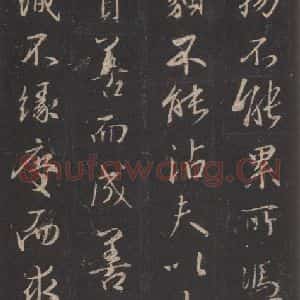 物不能累所憑
類不能沾夫以
資善而成善
識不緣慶而求
Shufawang.CN